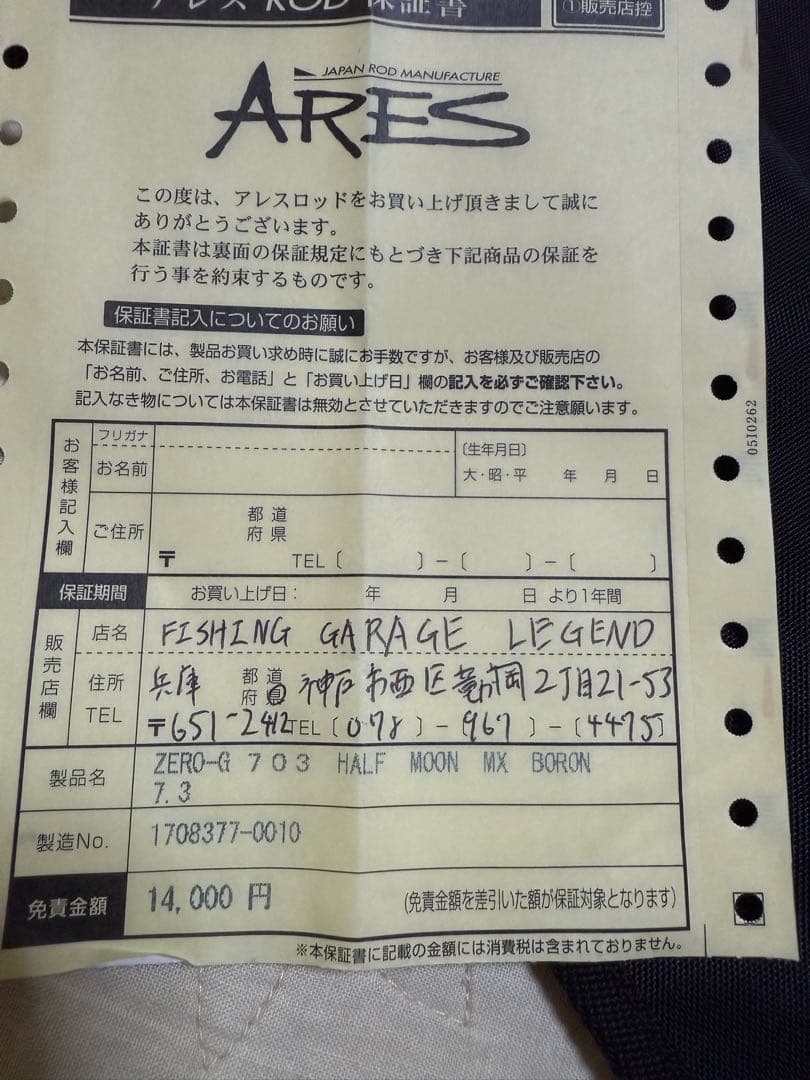 アレス ROD 保証書
①販売店控
JAPAN ROD MANUFACTURE
ARES
この度は、アレスロッドをお買い上げ頂きまして誠に
ありがとうございます。
本証書は裏面の保証規定にもとづき下記商品の保証を
行う事を約束するものです。
保証書記入についてのお願い
本保証書には、製品お買い求め時に誠にお手数ですが、お客様及び販売店の
「お名前、ご住所、お電話」と「お買い上げ日」欄の記入を必ずご確認下さい。
記入なき物については本保証書は無効とさせていただきますのでご注意願います。
05I0262
お客様記入欄
フリガナ
お名前
〔生年月日〕
大・昭・平 年 月 日
ご住所
都道
府県
〒 TEL〔 〕－〔 〕－〔 〕
保証期間 お買い上げ日： 年 月 日 より1年間
販売店欄
店名 FISHING GARAGE LEGEND
住所 兵庫 都道府県 神戸市西区竜が岡2丁目21-53
TEL 〒651-2412 TEL〔078〕－〔967〕－〔4475〕
製品名 ZERO-G 703 HALF MOON MX BORON
7.3
製造No. 1708377-0010
免責金額 14,000 円 (免責金額を差引いた額が保証対象となります)
※本保証書に記載の金額には消費税は含まれておりません。